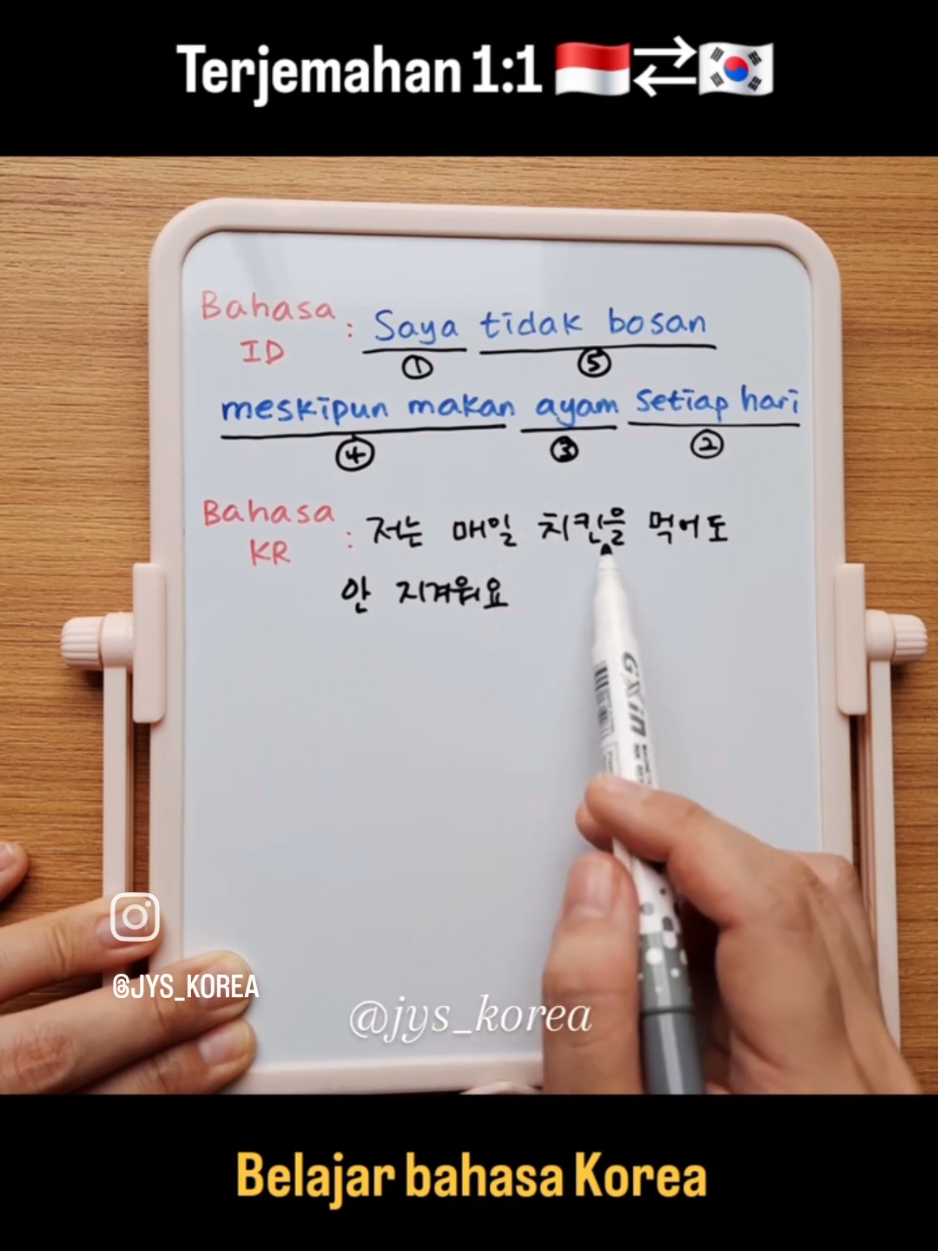 Terjemahan 1:1 🇮🇩⇄🇰🇷
Bahasa ID : Saya tidak bosan
① ⑤
meskipun makan ayam setiap hari
④ ③ ②
Bahasa KR : 저는 매일 치킨을 먹어도
안 지겨워요
GXin
@JYS_KOREA
@jys_korea
Belajar bahasa Korea